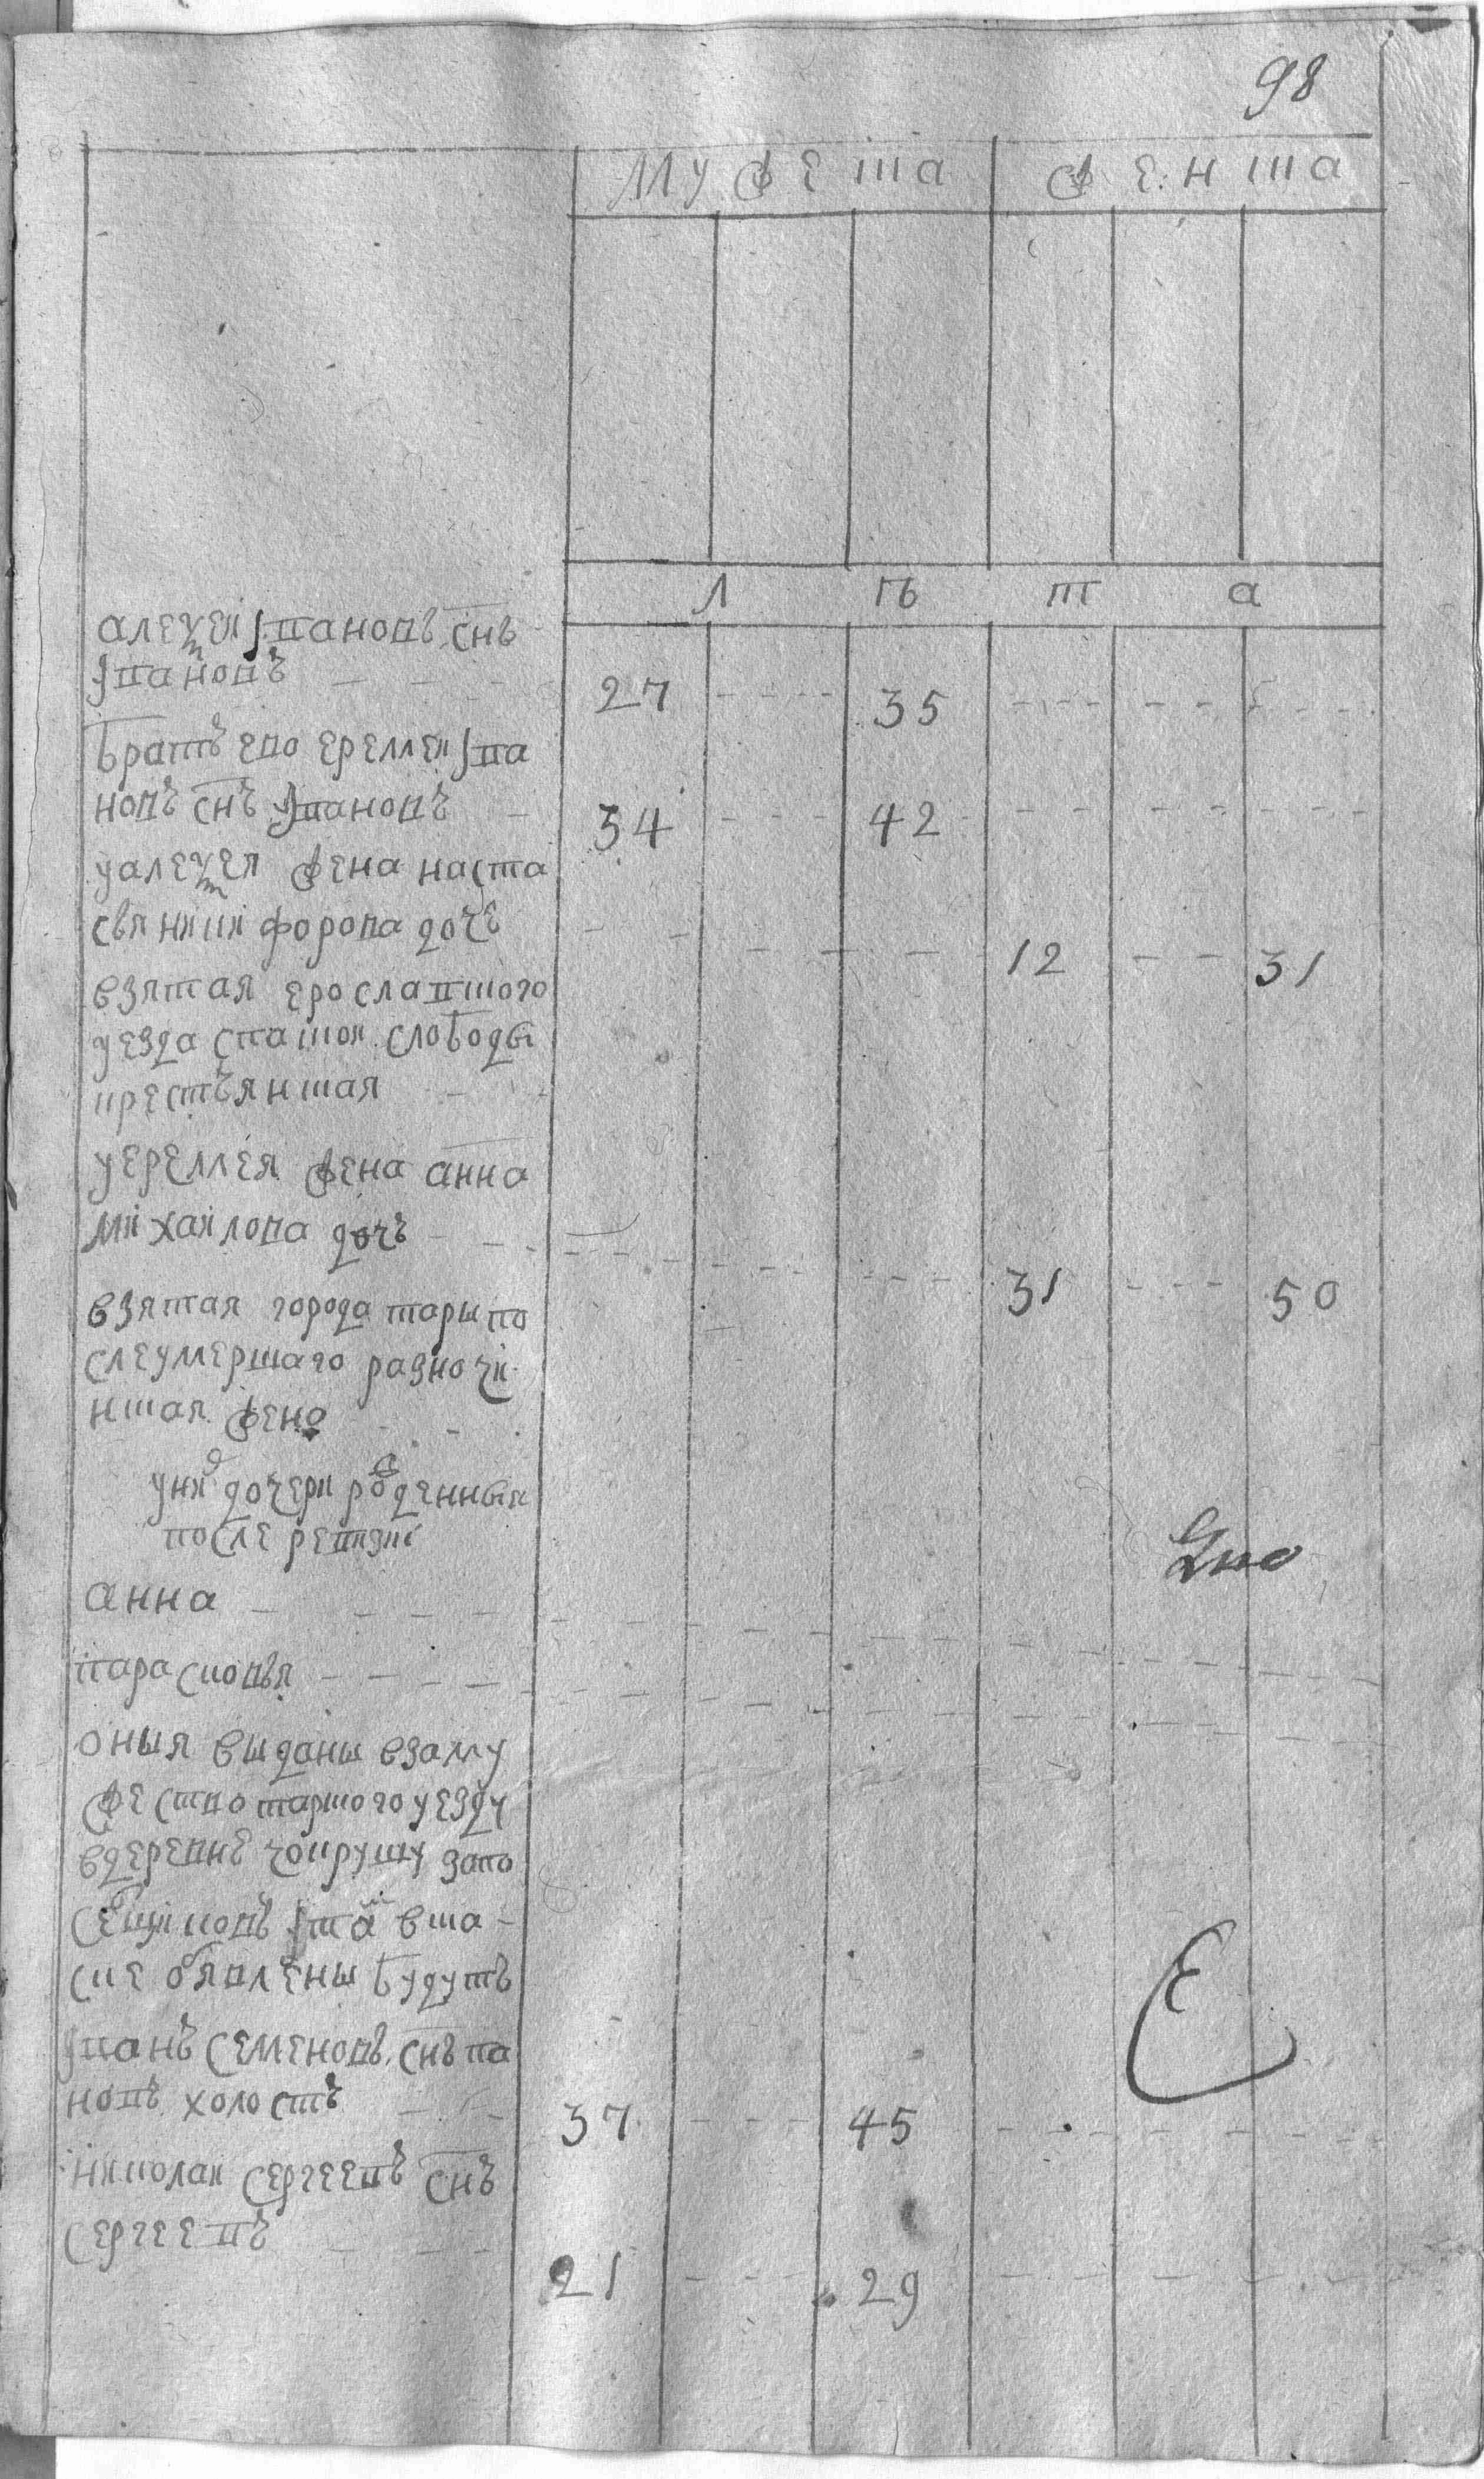 98
Мужеска Женска
Л ѣ т а
Алеѯеи Iвановъ снъ
Iвановъ 27 35
братъ ево Еремеи Iва
новъ снъ Iвановъ 34 42
у Алеѯея жена Наста
сья Никифорова дочь 12 31
взятая Ерославского
уезда Спаской слободы
крестьянская
у Еремея жена Анна
Михаилова дочь 31 50
взятая города Тары по
сле умершаго разночи
нская жена
у них дочери рожденныя
после ревизиi
Анна
Парасковья
оныя выданы в заму
жество Тарского уезду
в деревне Чокрушу запо
iтак в ска
ске обявлены будутъ
Iванъ Семеновъ снъ Па
новъ холостъ 37 45
Николаи Сергеевъ снъ
Сергеевъ 21 29